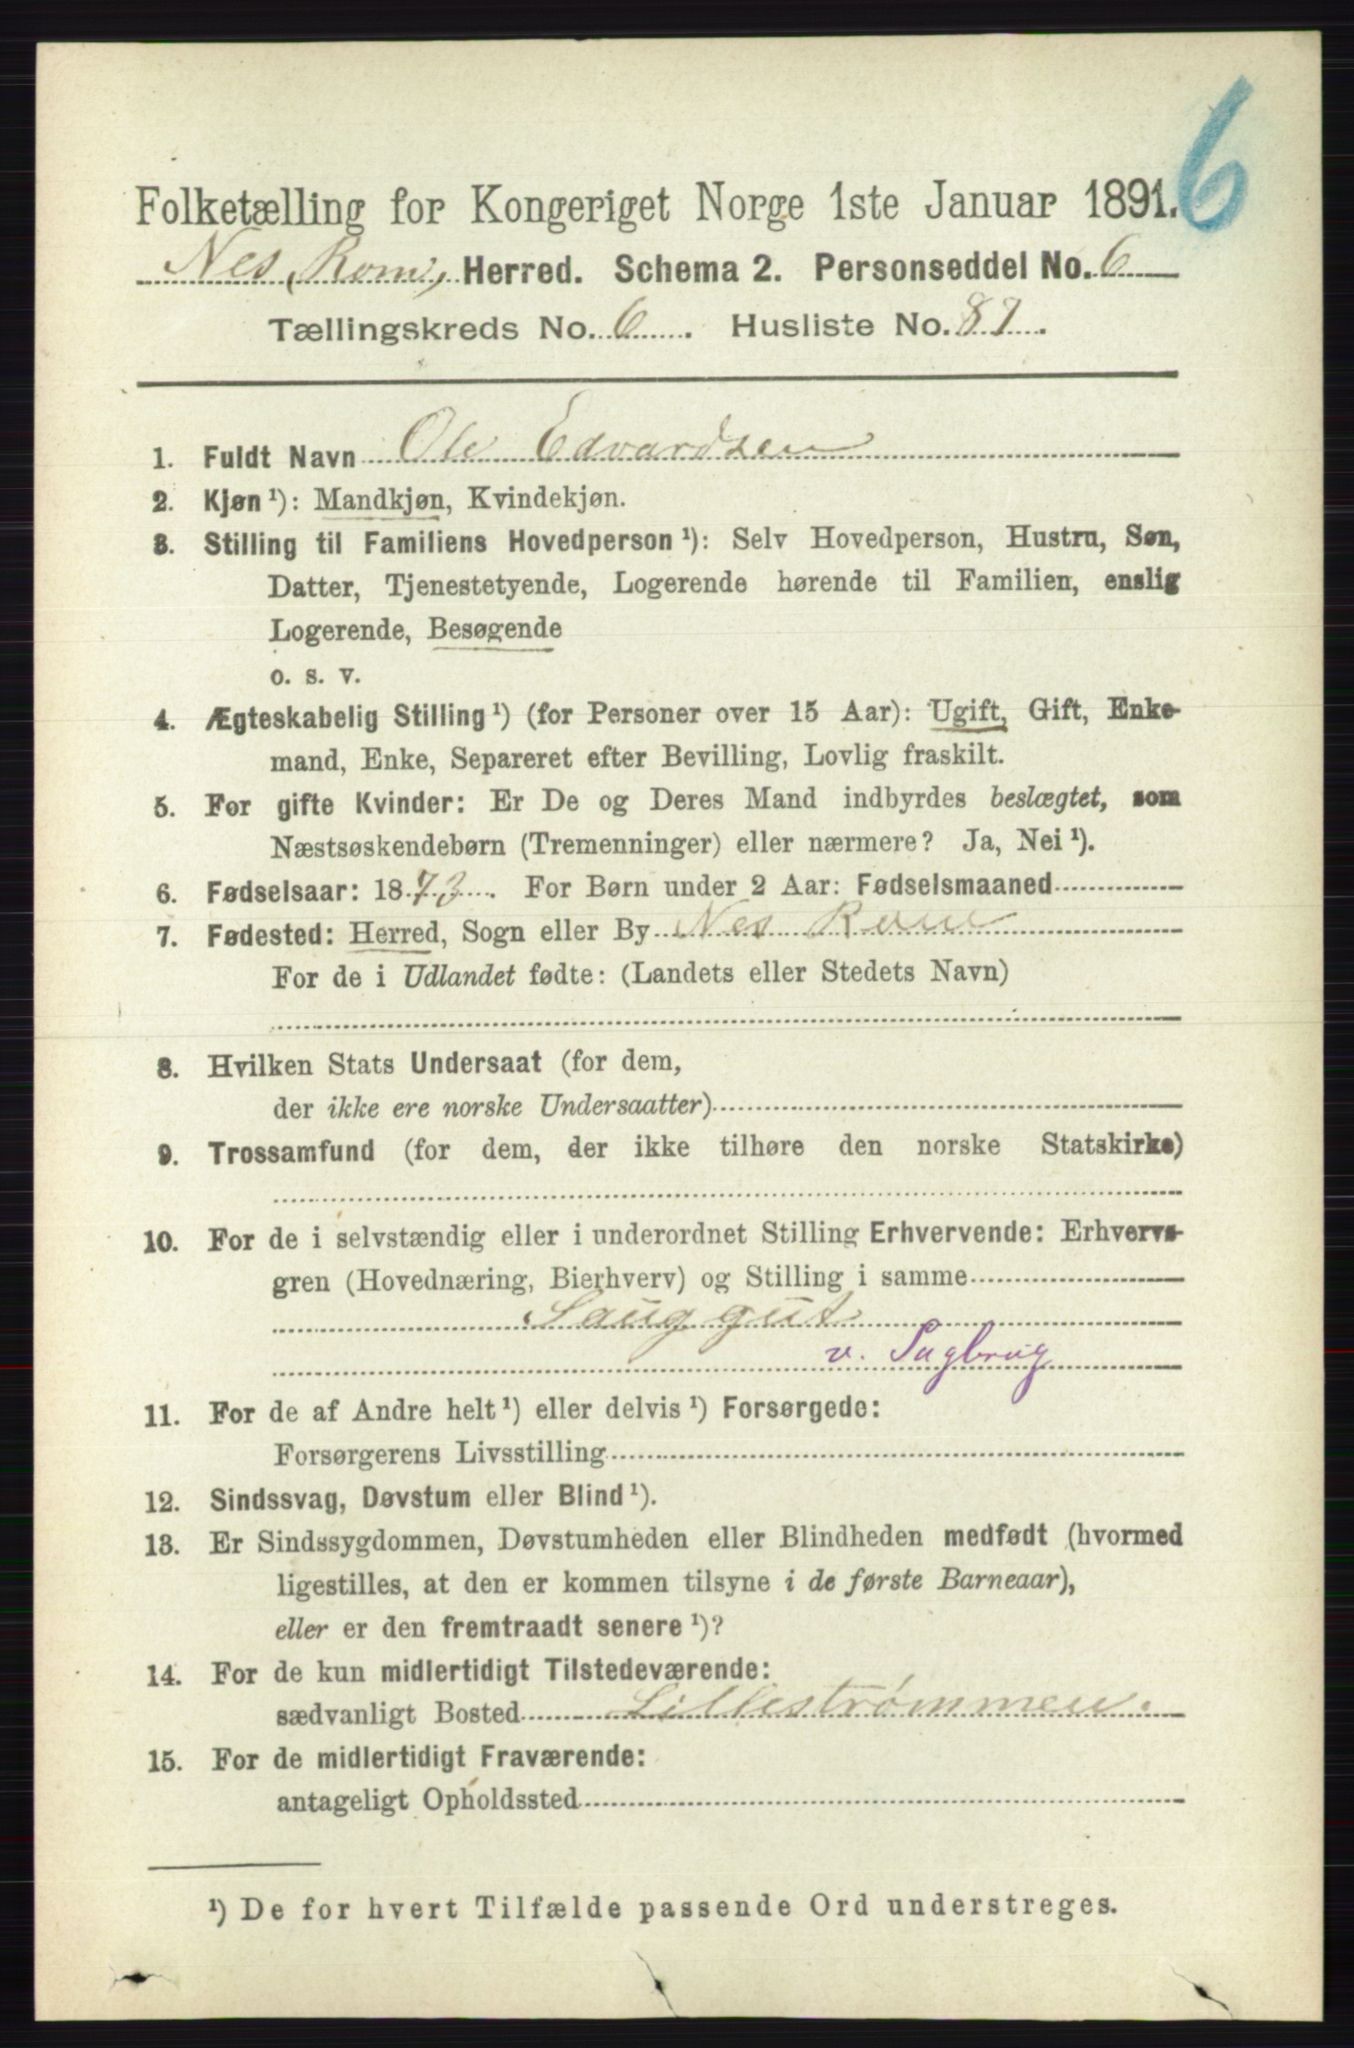 6
Folketælling for Kongeriget Norge 1ste Januar 1891.
Nes, Rom, Herred. Schema 2. Personseddel No. 6
Tællingskreds No. 6. Husliste No. 87.
1. Fuldt Navn Ole Edvardsen
2. Kjøn ¹): Mandkjøn, Kvindekjøn.
3. Stilling til Familiens Hovedperson ¹): Selv Hovedperson, Hustru, Søn,
Datter, Tjenestetyende, Logerende hørende til Familien, enslig
Logerende, Besøgende
o. s. v.
4. Ægteskabelig Stilling ¹) (for Personer over 15 Aar): Ugift, Gift, Enke-
mand, Enke, Separeret efter Bevilling, Lovlig fraskilt.
5. For gifte Kvinder: Er De og Deres Mand indbyrdes beslægtet, som
Næstsøskendebørn (Tremenninger) eller nærmere? Ja, Nei ¹).
6. Fødselsaar: 1873. For Børn under 2 Aar: Fødselsmaaned
7. Fødested: Herred, Sogn eller By Nes Rom
For de i Udlandet fødte: (Landets eller Stedets Navn)
8. Hvilken Stats Undersaat (for dem,
der ikke ere norske Undersaatter)
9. Trossamfund (for dem, der ikke tilhøre den norske Statskirke)
10. For de i selvstændig eller i underordnet Stilling Erhvervende: Erhvervs-
gren (Hovednæring, Bierhverv) og Stilling i samme
Sauggut
v. Sagbrug
11. For de af Andre helt ¹) eller delvis ¹) Forsørgede:
Forsørgerens Livsstilling
12. Sindssvag, Døvstum eller Blind ¹).
13. Er Sindssygdommen, Døvstumheden eller Blindheden medfødt (hvormed
ligestilles, at den er kommen tilsyne i de første Barneaar),
eller er den fremtraadt senere ¹)?
14. For de kun midlertidigt Tilstedeværende:
sædvanligt Bosted Lillestrømmen.
15. For de midlertidigt Fraværende:
antageligt Opholdssted
¹) De for hvert Tilfælde passende Ord understreges.